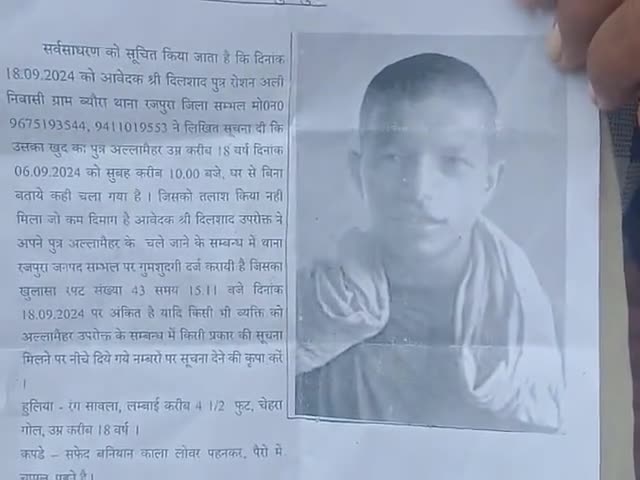 सर्वसाधारण को सूचित किया जाता है कि दिनांक
18.09.2024 को आवेदक श्री दिलशाद पुत्र रोशन अली
निवासी ग्राम ब्यौरा थाना रजपुरा जिला सम्भल मो0न0
9675193544, 9411019553 ने लिखित सूचना दी कि
उसका खुद का पुत्र अल्लामैहर उम्र करीब 18 वर्ष दिनांक
06.09.2024 को सुबह करीब 10.00 बजे, घर से बिना
बताये कही चला गया है । जिसको तलाश किया नही
मिला जो कम दिमाग है आवेदक श्री दिलशाद उपरोक्त ने
अपने पुत्र अल्लामैहर के चले जाने के सम्बन्ध में थाना
रजपुरा जनपद सम्भल पर गुमशुदगी दर्ज करायी है जिसका
खुलासा रपट संख्या 43 समय 15.11 बजे दिनांक
18.09.2024 पर अंकित है यादि किसी भी व्यक्ति को
अल्लामैहर उपरोक्त के सम्बन्ध में किसी प्रकार की सूचना
मिलने पर नीचे दिये गये नम्बरों पर सूचना देने की कृपा करें
।
हुलिया - रंग सावला, लम्बाई करीब 4 1/2 फुट, चेहरा
गोल, उम्र करीब 18 वर्ष ।
कपडे – सफेद बनियान काला लोवर पहनकर, पैरो में